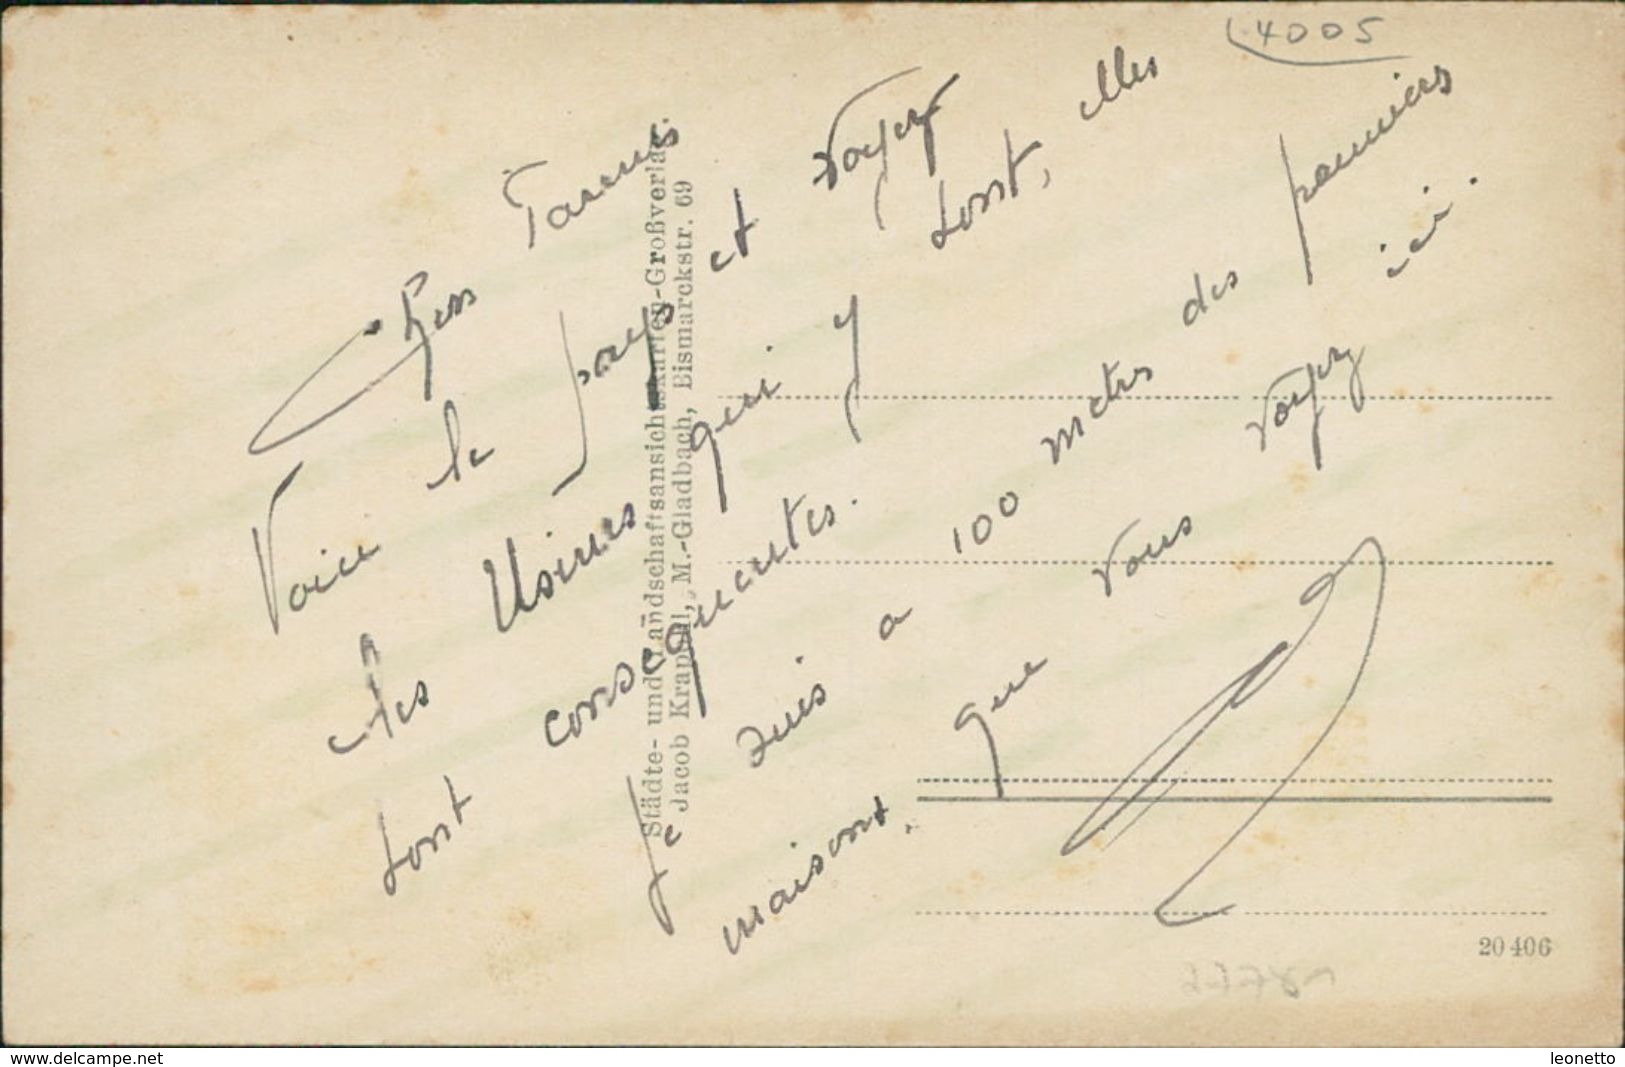 4005
Chers Parents
Voici le pays et voyez
les Usines qui y sont, elles
sont conséquentes.
Je suis a 100 metres des premiers
maisons, que vous voyez ici.
Städte- und Landschaftsansichtskarten-Großverlag
Jacob Krapohl, M.-Gladbach, Bismarckstr. 69
20 406
www.delcampe.net
leonetto